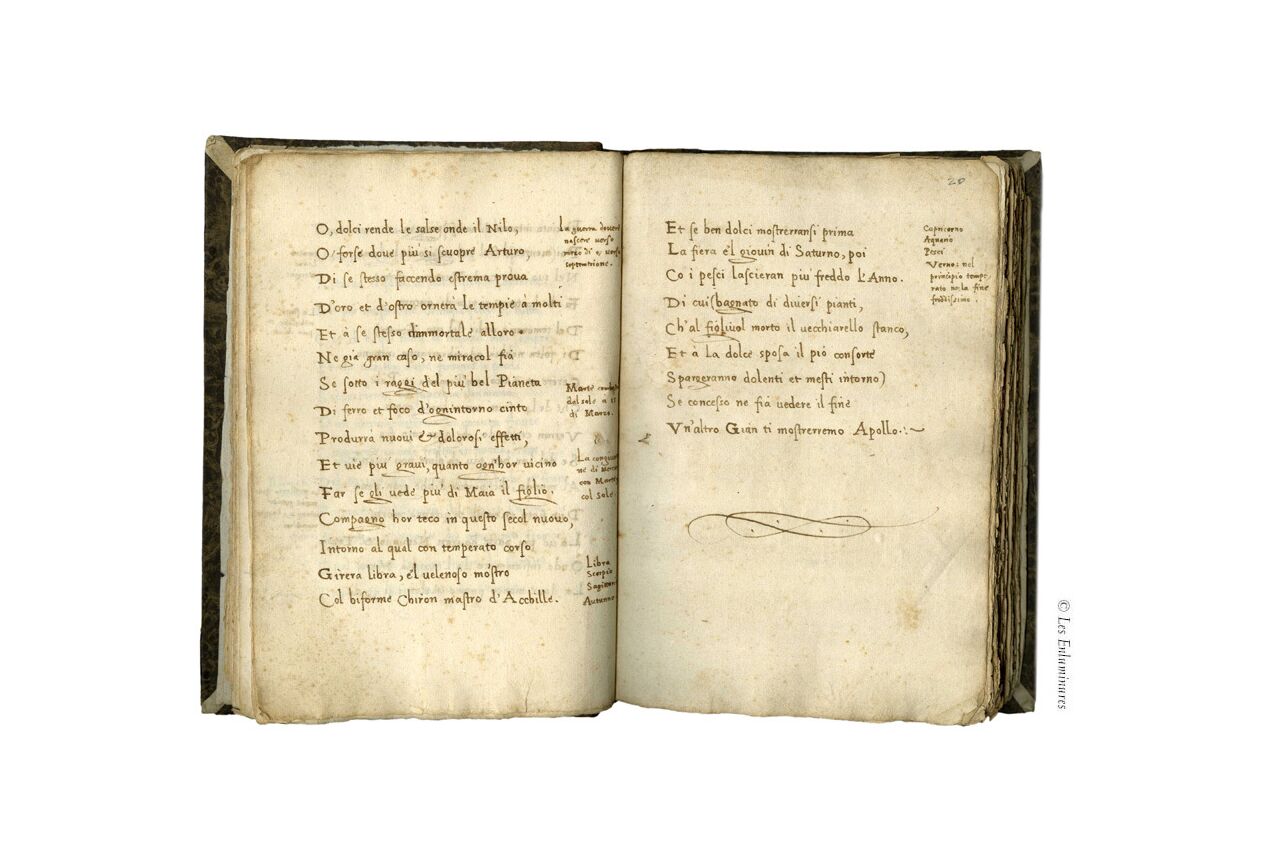 O, dolci rende le salse onde il Nilo,
O' forse doue piu si scuopre Arturo
Di se stesso faccendo estrema proua
D'oro et d'ostro ornerà le tempie à molti
Et à se stesso d'immortale alloro.
Ne gia gran caso, ne miracol fia
Se sotto i raggi del piu bel Pianeta
Di ferro et foco d'ognintorno cinto
Produrrà nuoui & dolorosi effetti,
Et uie piu graui, quanto ogn'hor uicino
Far se gli uede piu di Maia il figlio.
Compagno hor teco in questo secol nuouo,
Intorno al qual con temperato corso
Girera libra, e'l uelenoso mostro
Col biforme Chiron mastro d'Acchille.
la guerra douer
nascere uerso
mezo di e uerso
septentrione.
Marte
del sole a 15
di Marzo.
La
ne di
con Marte
col Sole.
Libra
Scorpio
Sagittario
Autunno
20
Et se ben dolci mostrerransi prima
La fiera e'l giouin di Saturno, poi
Co i pesci lascieran piu freddo l'Anno.
Di cui (bagnato di diuersi pianti,
Ch'al figliuol morto il uecchiarello stanco,
Et à la dolce sposa il pio consorte
Spargeranno dolenti et mesti intorno)
Se concesso ne fia uedere il fine
Vn'altro Gian ti mostrerremo Apollo.
Capricorno
Aquario
Pesci
Verno: nel
principio tempe
rato ne la fine
freddissimo.
© Les Enluminures